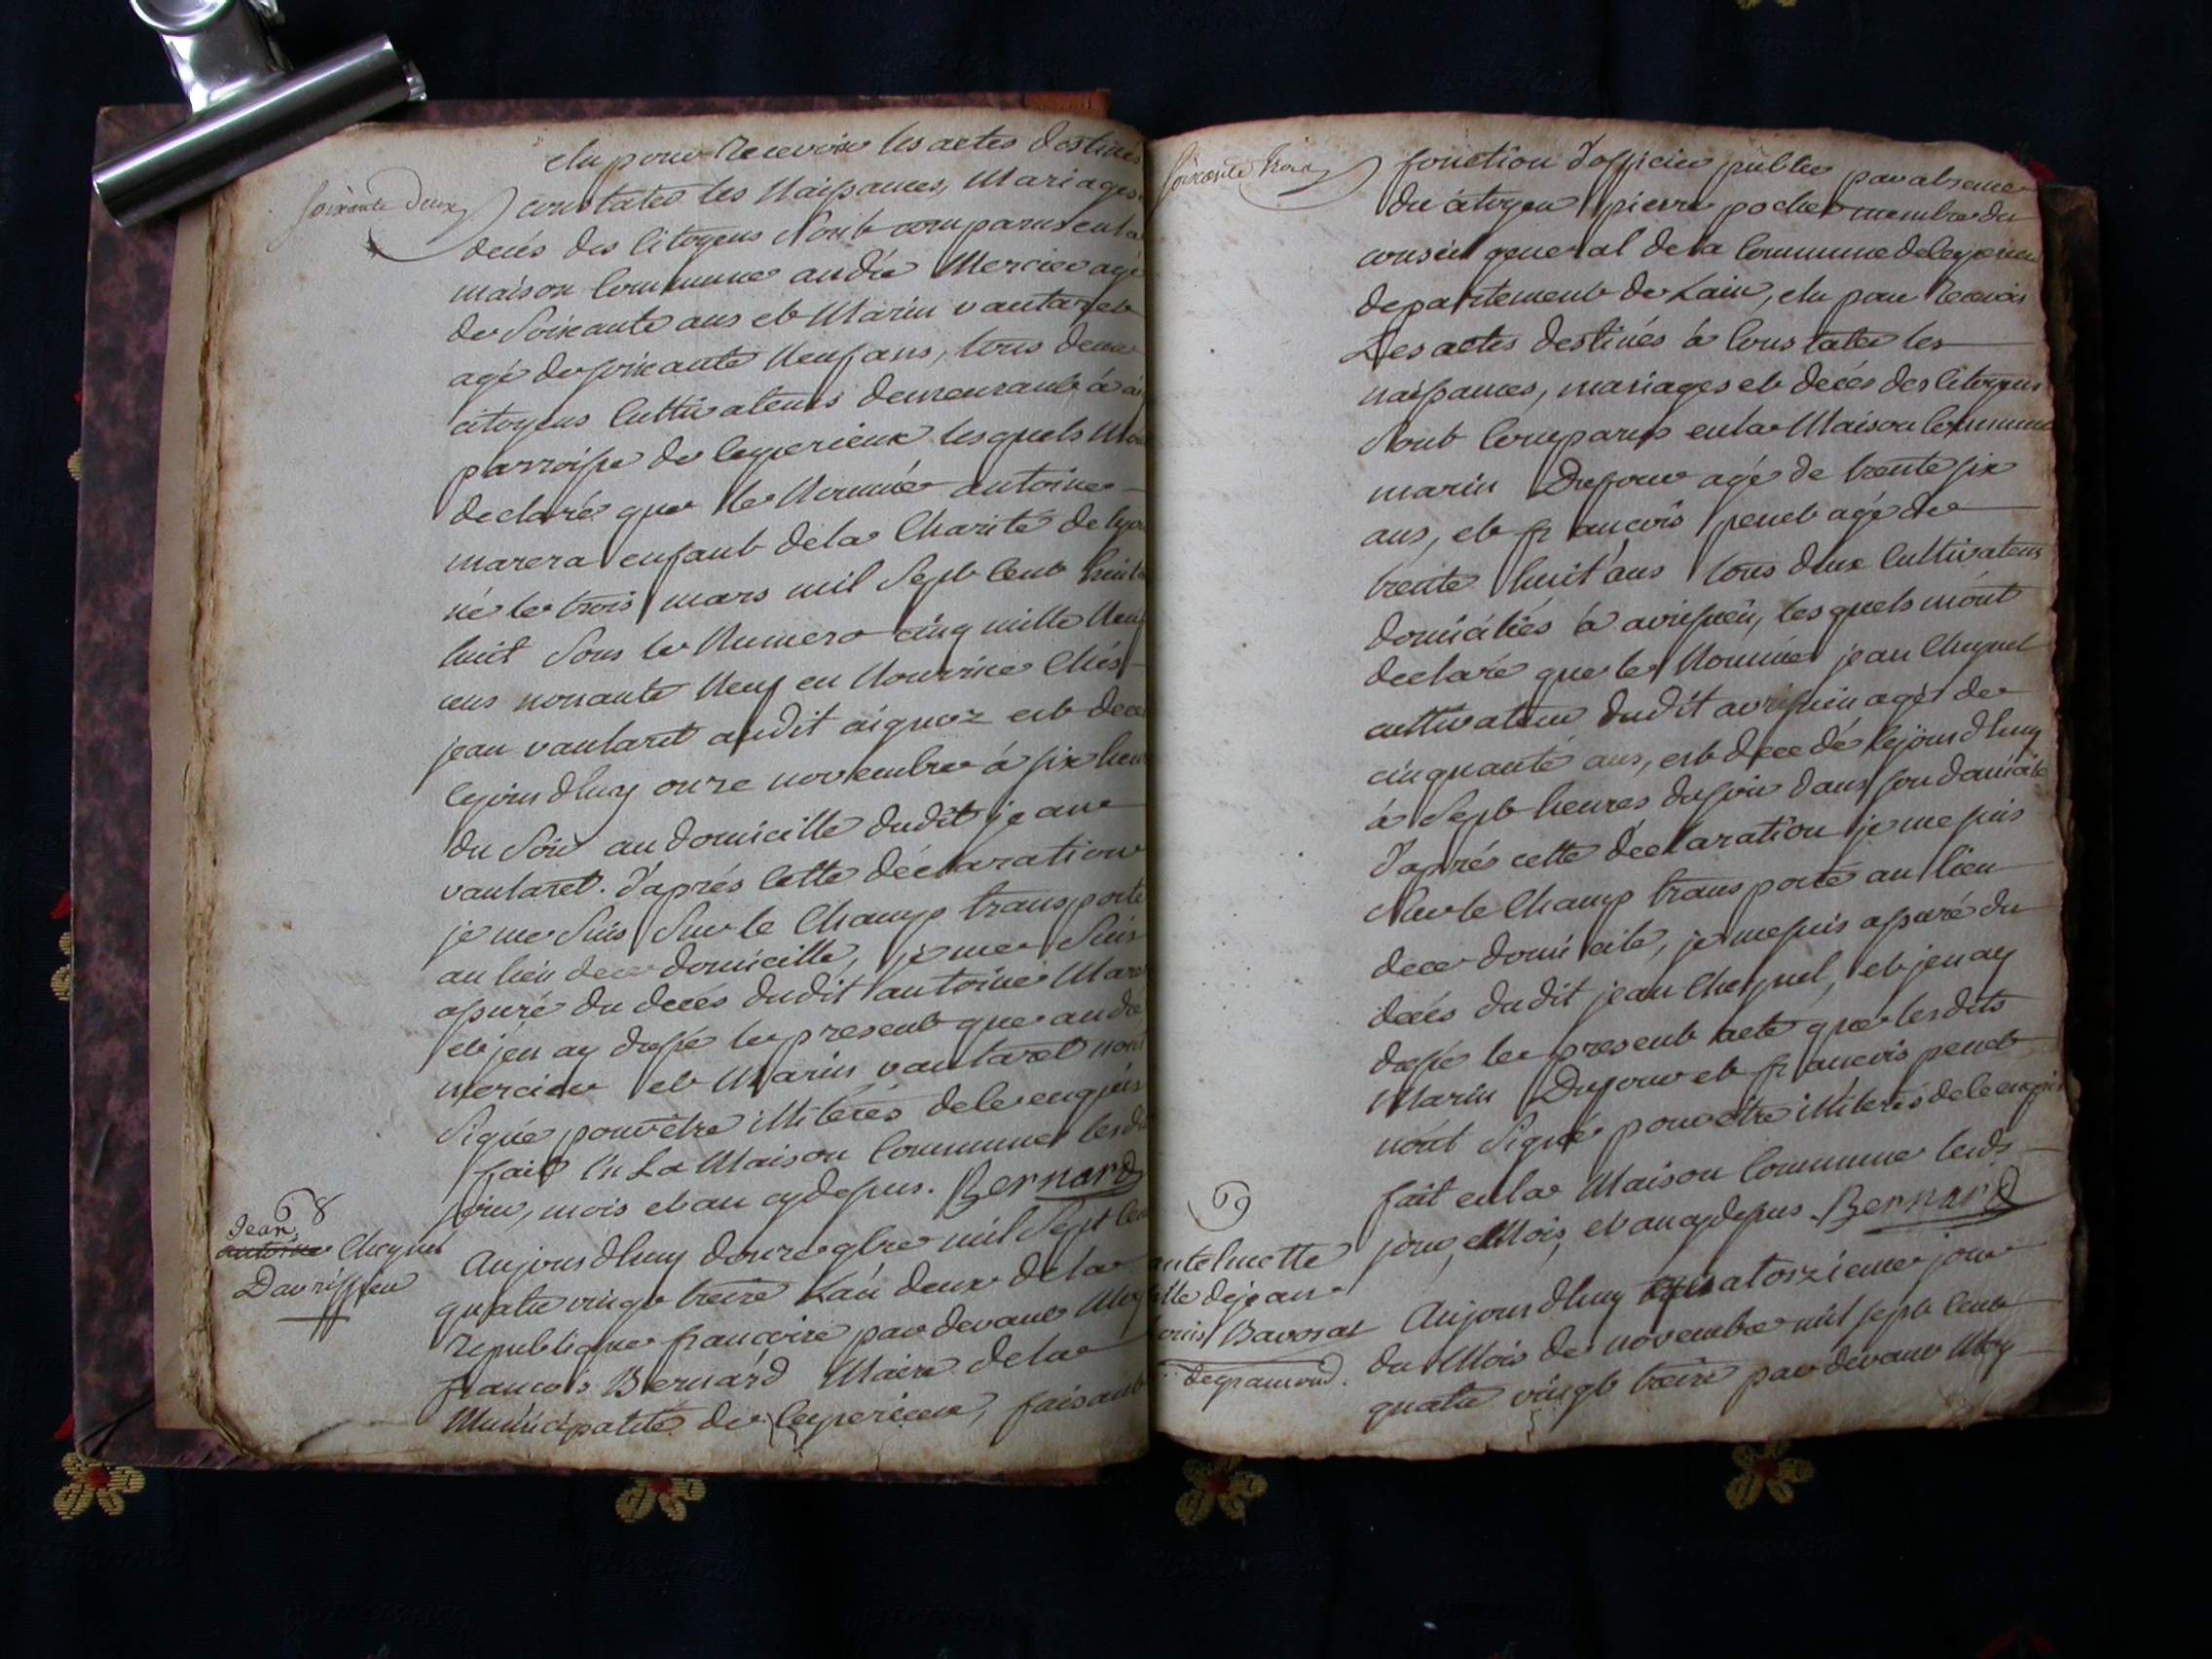 soixante deux
elu pour recevoir les actes destines
constater les Naissances, Mariages
decés des Citoyens Sont comparus en la
maison Commune andré Mercier agé
de Soixante ans et Marin vautaret
agé de soixante Neuf ans, tous deux
citoyens Cultivateurs demeurant à
parroisse de Ceyzerieux lesquels
declaré que le Nommé antoine
marera enfant dela Charité de Lyon
né le trois mars mil Sept Cent
huit Sous le Numero cinq mille Neuf
cens nonante Neuf en Nourrice Chés
jean vautaret audit aignoz est
cejourdhuy onze novembre à six heures
du Soir au domicille dudit jean
vautaret. d'aprés Cette déclaration
je me Suis Sur le Champ transporté
au lieu de ce domicille, je me Suis
assuré du decés dudit antoine
et j'en ay dressé le present que andré
mercier et Marin vautaret n'ont
Signé pour être illitérés de le enquis
fait En La Maison Commune lesdits
jour, mois et an cy dessus. Bernard
68
Jean
antoine Cheynel
Davrissieu
Aujourdhuy douze 9bre mil Sept Cent
quatre vingt treize L'an deux de la
republique francoise par devant Moy
francois Bernard Maire dela
Municipalité de Ceyzerieux, faisant
soixante trois
fonction d'officier public par absence
du citoyen pierre pochet membre du
conseil general de la Commune de Ceyzerieu
departement de Lain, elu pour Recevoir
Les actes destinés à Constater les
naissances, mariages et decés des Citoyens
Sont Comparus en la Maison Commune
marin Dufour agé de trente six
ans, et francois penet agé de
trente huit ans tous deux Cultivateurs
domiciliés à avrissieu, les quels m'ont
declaré que le Nommé jean Cheynel
cultivateur dudit avrissieu agé de
cinquante ans, est decedé cejourdhuy
à Sept heures du soir dans son domicile
d'aprés cette déclaration je me suis
Sur le Champ transporté au lieu
de ce domicile, je me suis assuré du
decés dudit jean Cheynel, et j'en ay
dressé le present acte que lesdits
Marin Dufour et francois penet
n'ont Signé pour être illiterés de le enquis
fait en la Maison Commune lesds
jour, Mois, et an cy dessus. Bernard
69
antelmette
fille de jean
Louis Bavozat
degramond.
Aujourdhuy quatorzieme jour
du Mois de novembre mil sept Cent
quatre vingt treize par devant Moy